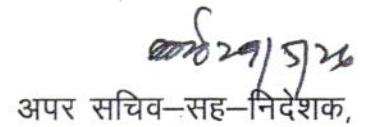 29/5/26
अपर सचिव–सह–निदेशक,